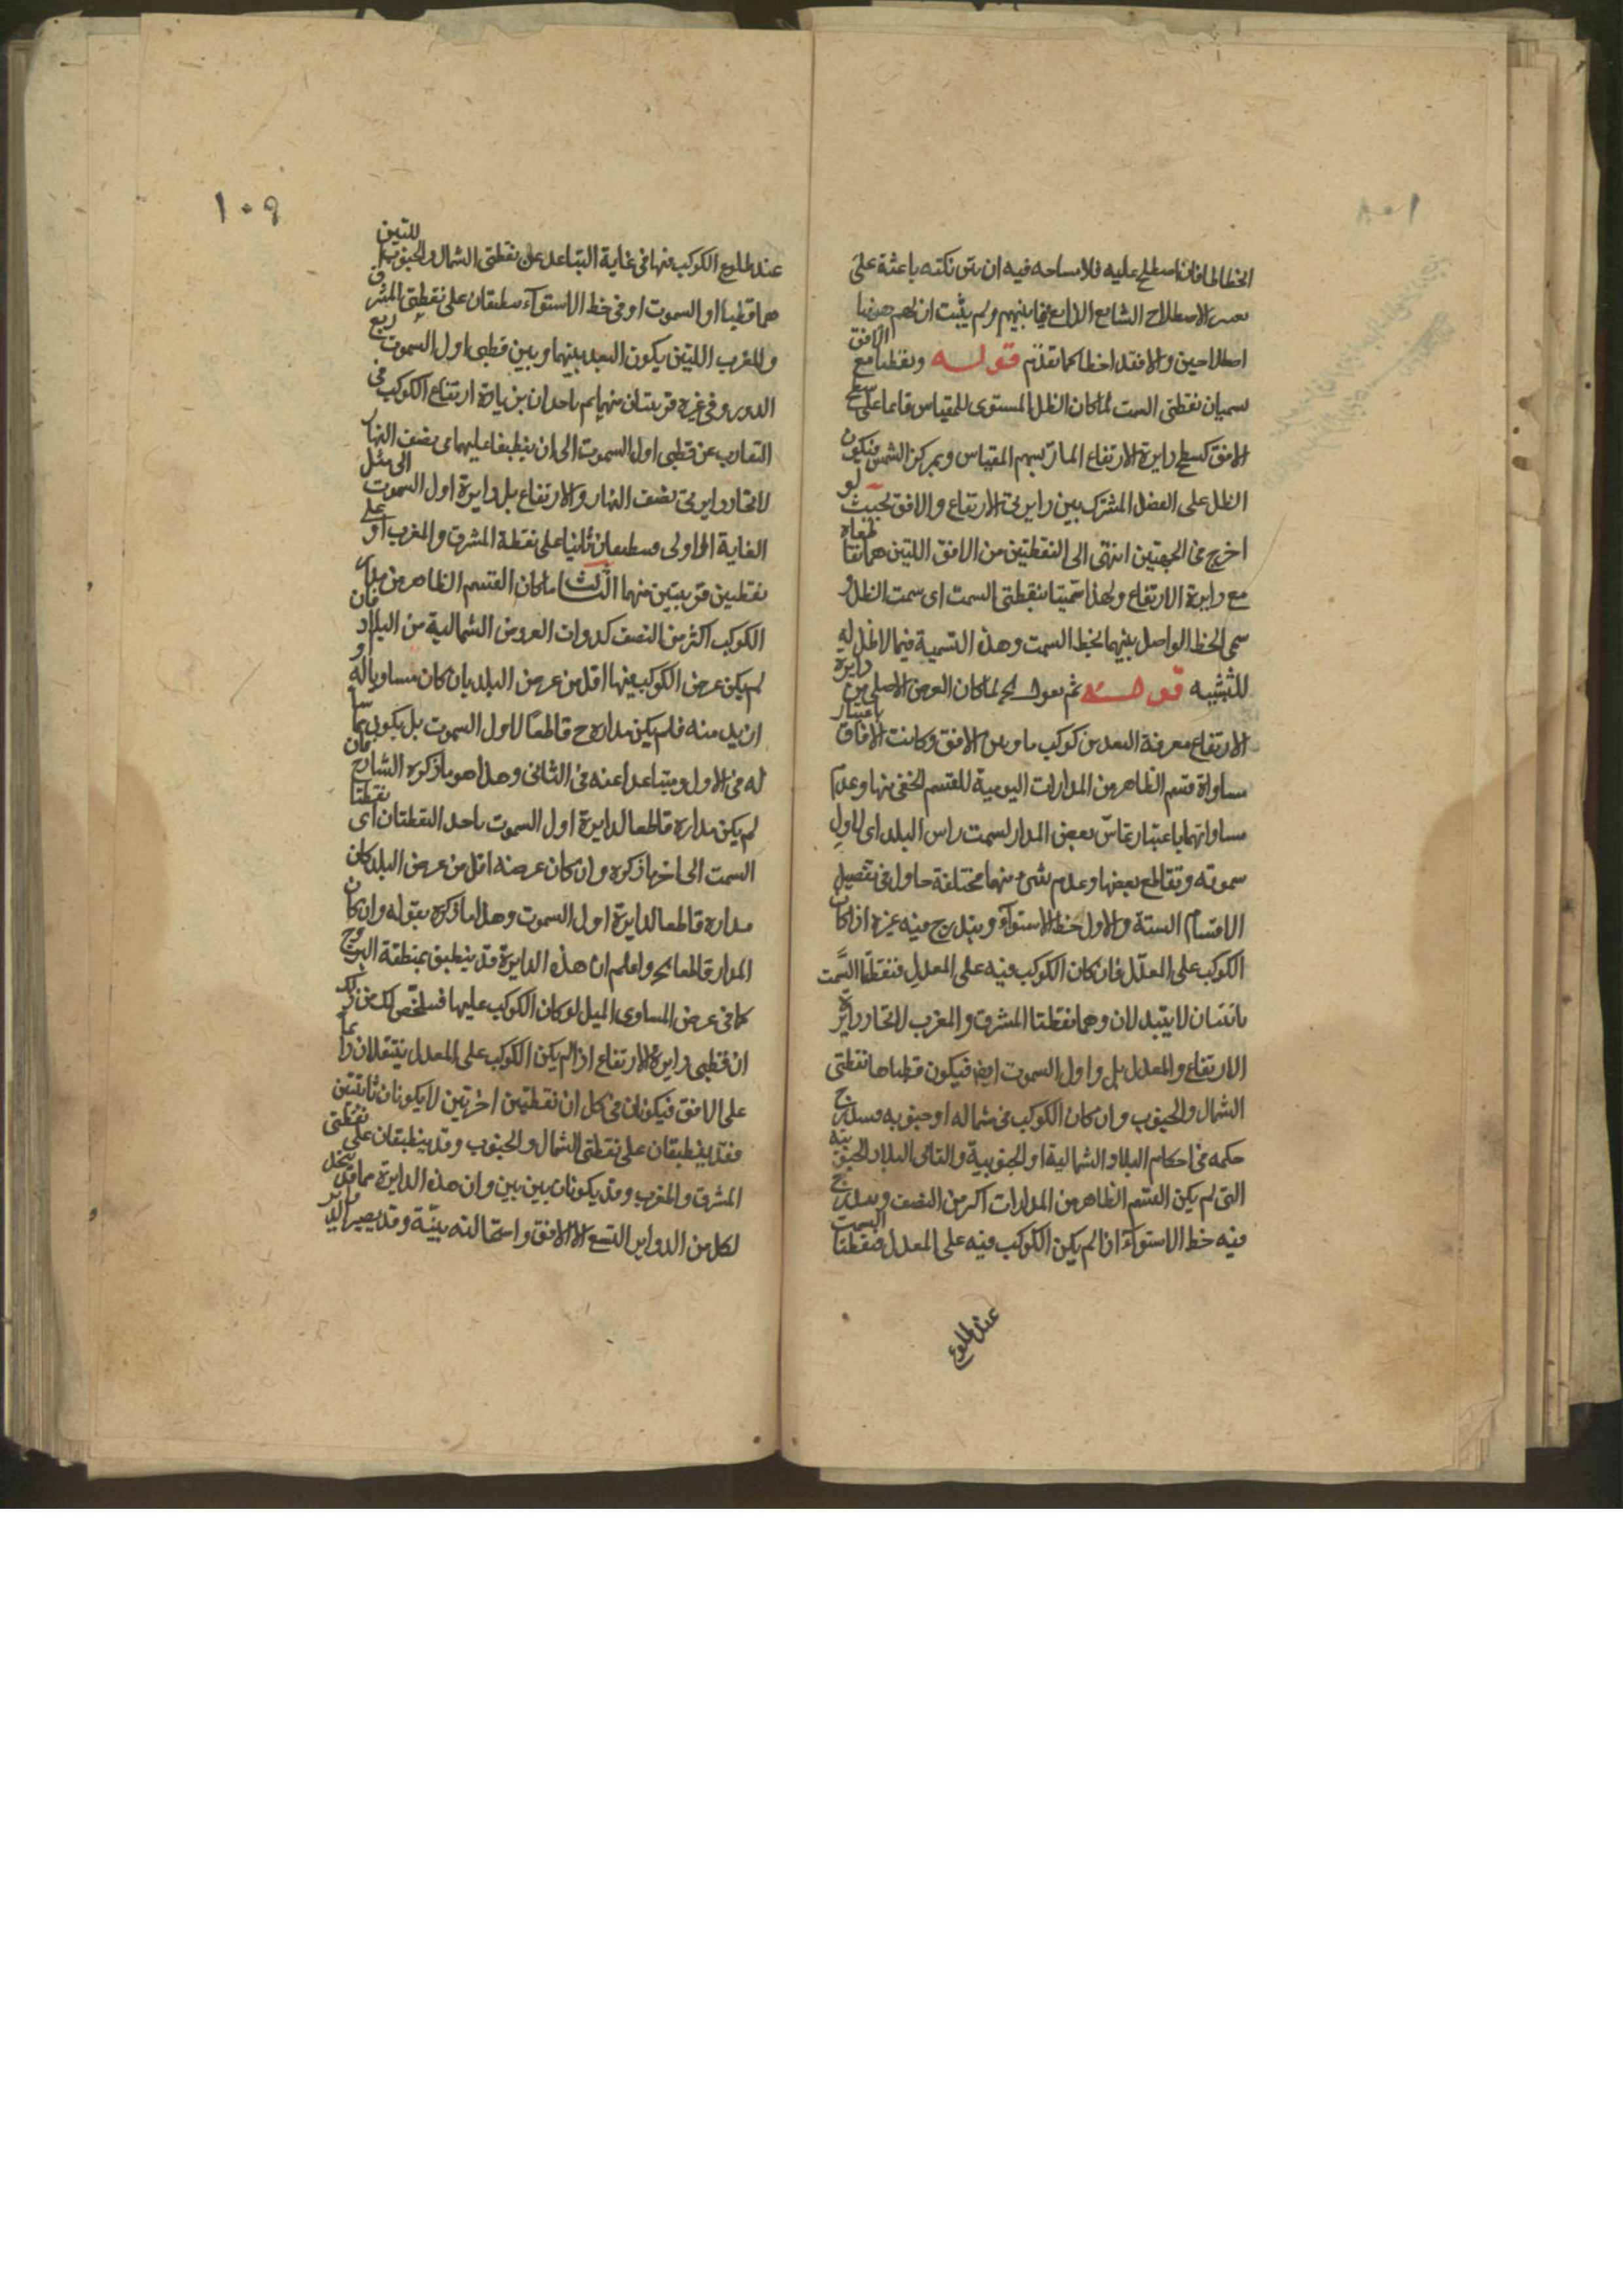 الخطا لطافة اصطلح عليه فلا مسامحة فيه ان بين نكته باعثة على
الاصطلاح الشايع الذايع فيما بينهم ولم يثبت ان لهم ههنا
اصطلاحين والا فقد اخطا كما تقدم قوله ونقطتا مع الافق
سميان نقطتى السمت لما كان الظل المستوى للمقياس قايما على سطح
الافق كسطح دايرة الارتفاع المار بسهم المقياس وبمركز الشمس فيكون
الظل على الفصل المشترك بين دايرتى الارتفاع والافق بحيث لو
اخرج فى الجهتين انتهى الى النقطتين من الافق اللتين هما تقاطعاه
مع دايرة الارتفاع ولهذا سميتا بنقطتى السمت اى سمت الظل و
سمى الخط الواصل بينهما بخط السمت وهذه التسمية فيما لا ظل له
للتشبيه قوله ثم يقول الخ لما كان الغرض الاصلى من دايرة
الارتفاع معرفة البعد بين كوكب ما وبين الافق وكانت الافاق باعتبار
مساواة قسم الظاهر من المدارات اليومية للقسم الخفى منها وعدم
مساواتهما باعتبار تماس بعض المدار لسمت راس البلد اى لاول
سموته وتقاطع بعضها وعدم شئ منهما مختلفة حاول فى تفصيل
الاقسام الستة والاول خط الاستوآء ويتدرج فيه غيره اذا كان
الكوكب على المعدل فان كان الكوكب فيه على المعدل فنقطتا السمت
ثابتتان لا يتبدلان وهما نقطتا المشرق والمغرب لاتحاد دايرة
الارتفاع والمعدل بل واول السموت ايض فيكون قطباها نقطتى
الشمال والجنوب وان كان الكوكب فى شماله او جنوبه فسيدرج
حكمه فى احكام البلاد الشمالية او الجنوبية والثانى البلاد الجنوبية
التى لم يكن القسم الظاهر من المدارات اكثر من النصف ويندرج
فيه خط الاستوآء اذا لم يكن الكوكب فيه على المعدل فنقطتا السمت
عند طلوع
١٠٩
عند طلوع الكوكب منها فى غاية التباعد عن نقطتى الشمال والجنوب اللتين
هما قطبا اول السموت او فى خط الاستوآء ينطبقان على نقطتى المشرق
والمغرب اللتين يكون البعد بينهما وبين قطبى اول السموت ربع
الدور وفى غيره قريبتان منهما ثم ياخذان بزيادة ارتفاع الكوكب فى
التقارب عن قطبى اول السموت الى ان ينطبقا عليهما فى نصف النهار
لاتحاد دايرتى نصف النهار والارتفاع بل دايرة اول السموت الى مثل
الغاية الاولى وينطبقان ثانيا على نقطة المشرق والمغرب او على
نقطتين قريبتين منهما الثالث ما كان القسم الظاهر من مدار
الكوكب اكثر من النصف كذوات العروض الشمالية من البلاد فان
لم يكن عرض الكوكب منها اقل من عرض البلد بان كان مساويا له او
ازيد منه فلم يكن مداره ح قاطعا لاول السموت بل يكون مماسا
له فى الاول ومتباعدا عنه فى الثانى وهذا هو ما ذكره الشارح فان
لم يكن مداره قاطعا لدايرة اول السموت ياخذ النقطتان اى نقطتا
السمت الى اخر ما ذكره وان كان عرضه اقل من عرض البلد كان
مداره قاطعا لدايرة اول السموت وهذا ما ذكره بقوله وان كان
المدار قاطعا الخ واعلم ان هذه الدايرة قد ينطبق بمنطقة البروج
كما فى عرض المساوى الميل لو كان الكوكب عليها فتلخص لك من ذلك
ان قطبى دايرة الارتفاع اذا لم يكن الكوكب على المعدل ينتقلان دآئما
على الافق فيكونان فى كل ان نقطتين اخرتين لا يكونان ثابتتين
فقد ينطبقان على نقطتى الشمال والجنوب وقد ينطبقان على نقطتى
المشرق والمغرب وقد يكونان بين بين وان هذه الدايرة مما قد يتحد
لكل من الدواير التسع الا الافق واستحالته بينة وقد يصير الدواير